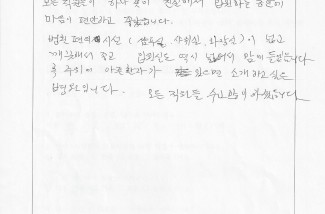 모든 직원들이 하나 같이 친절해서 입원하는 동안에
마음이 편안하고 좋았습니다.
병원 편의시설 ( 샤워실, 화장실 )이 넓고
깨끗해서 좋고 입원실도 역시 넓어서 맘에 들었습니다
혹 주위에 아픈환자가 있으면 소개하고싶은
병원입니다. 모든 직원들 수고많이 하셨습니다